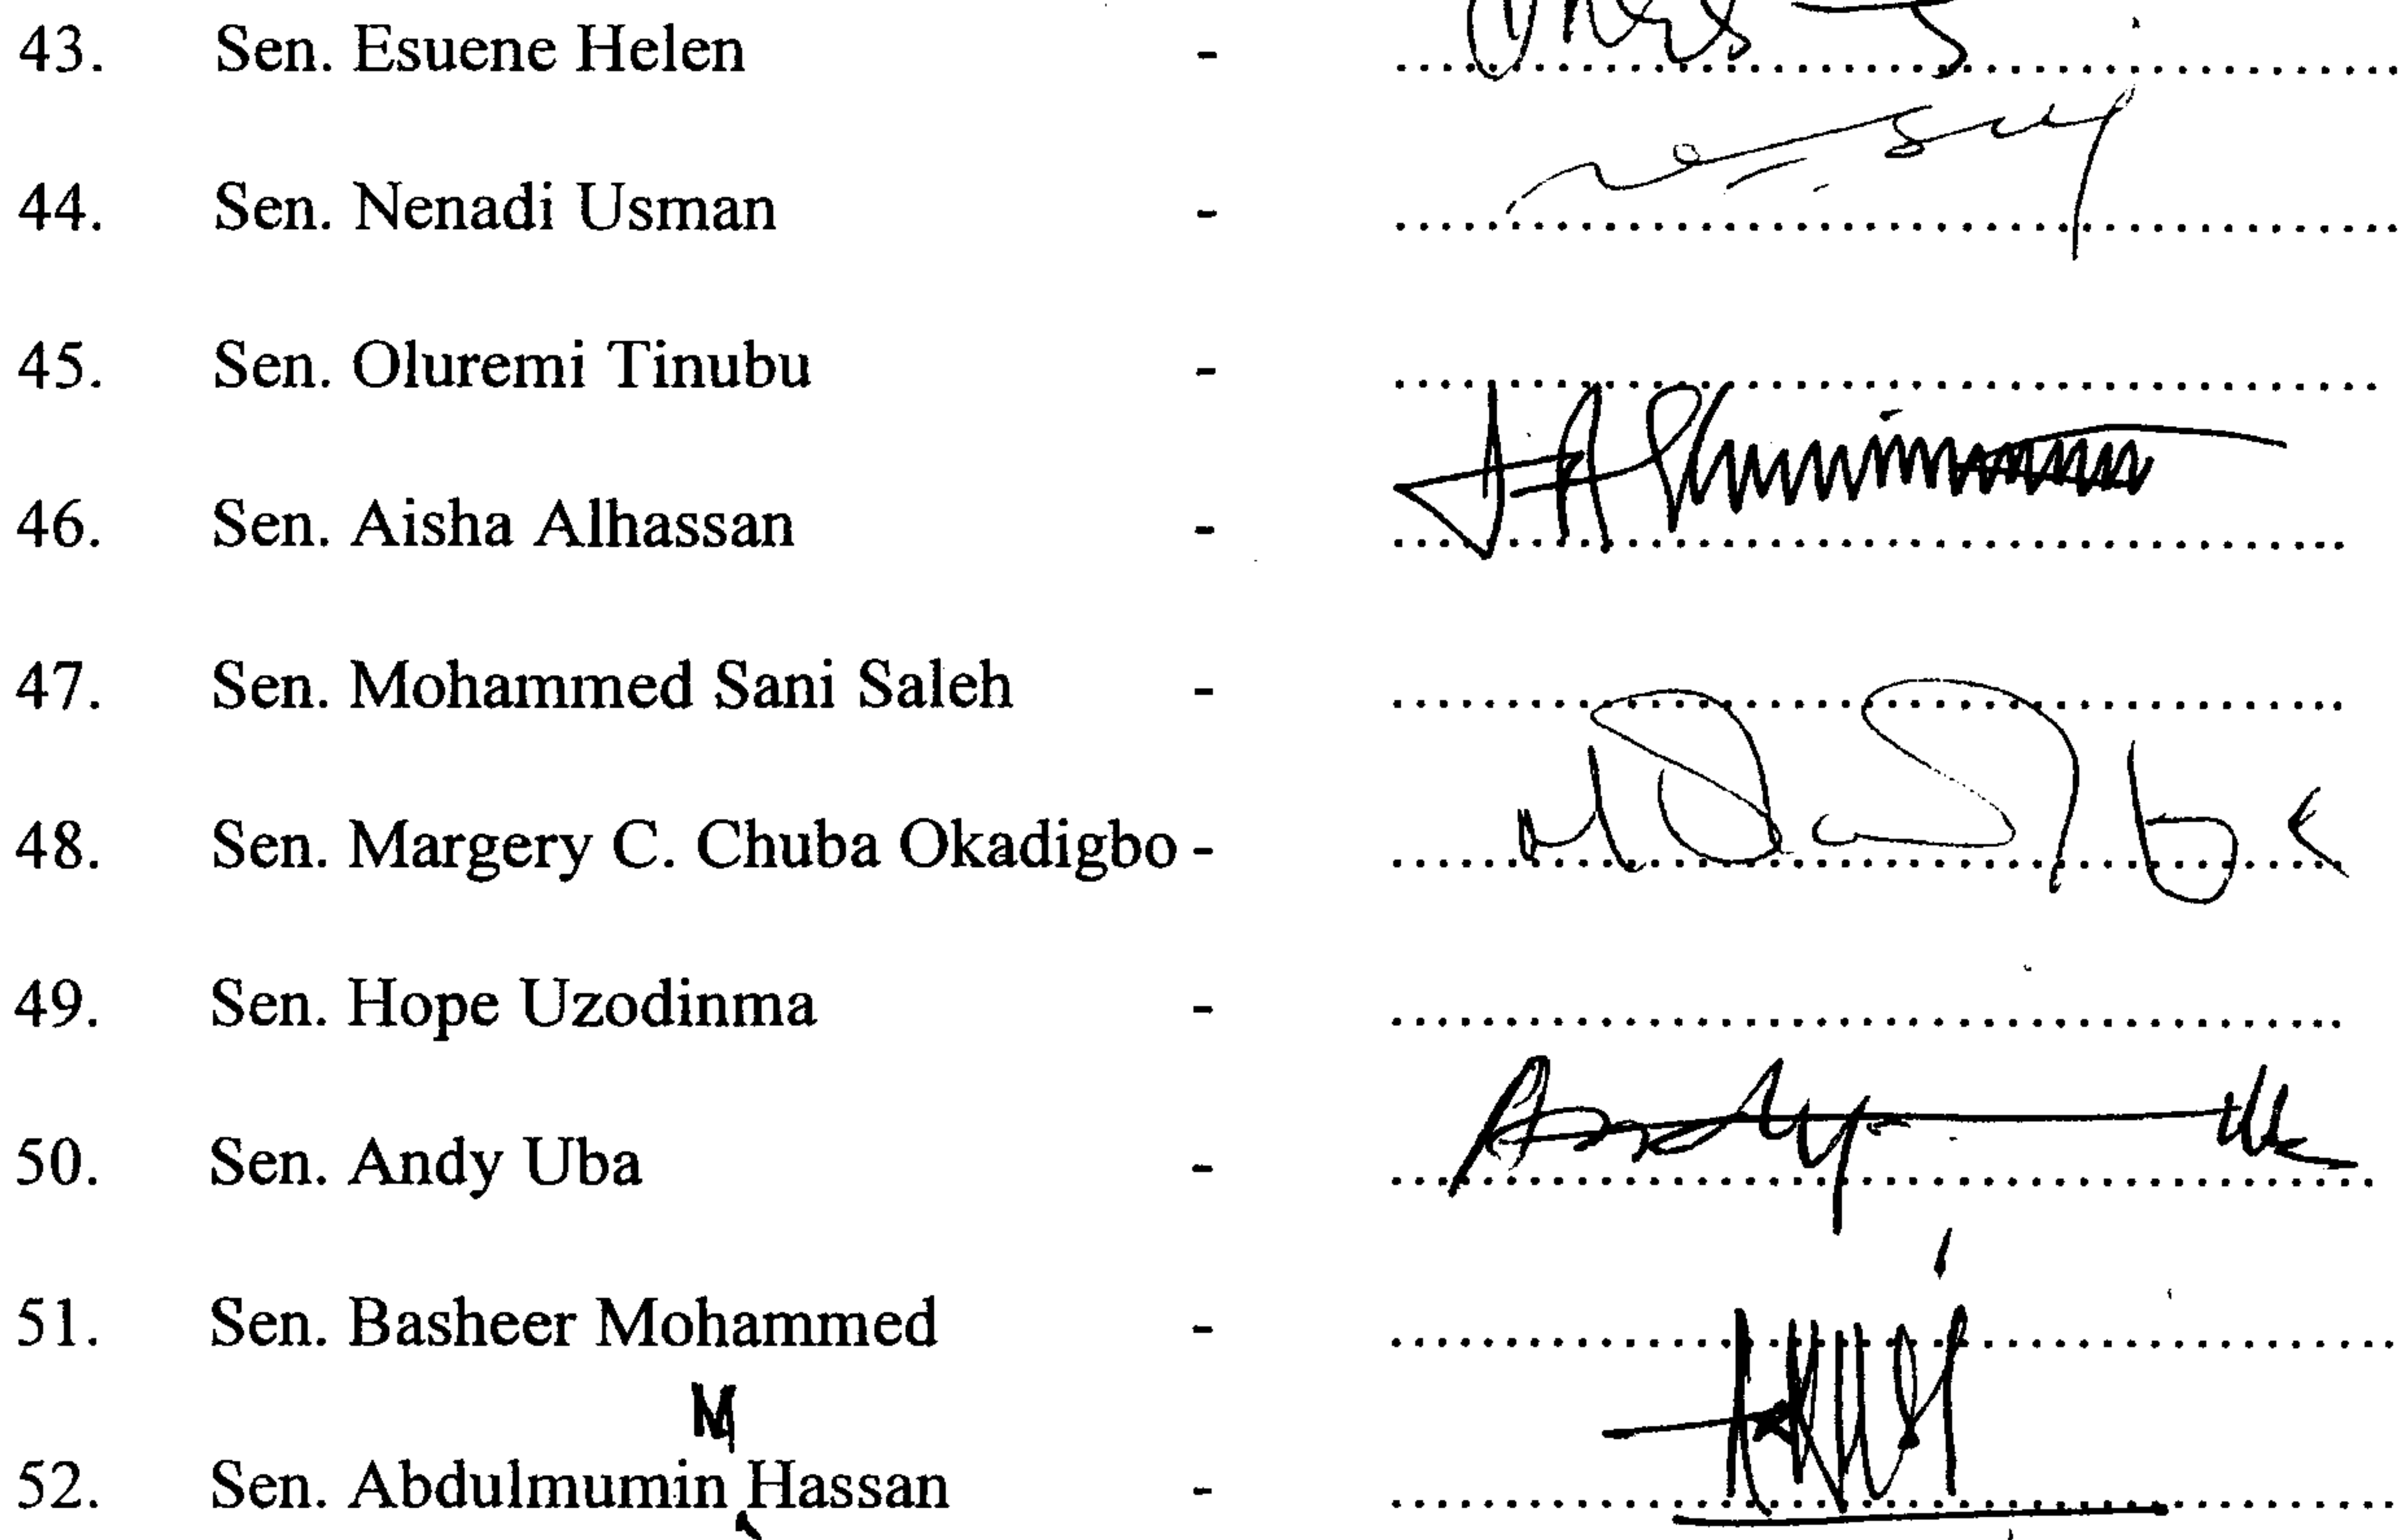 43. Sen. Esuene Helen - ........................................
44. Sen. Nenadi Usman - ........................................
45. Sen. Oluremi Tinubu - ........................................
46. Sen. Aisha Alhassan - ........................................
47. Sen. Mohammed Sani Saleh - ........................................
48. Sen. Margery C. Chuba Okadigbo - ........................................
49. Sen. Hope Uzodinma - ........................................
50. Sen. Andy Uba - ........................................ Andy
51. Sen. Basheer Mohammed - ........................................
M
52. Sen. Abdulmumin Hassan - ........................................